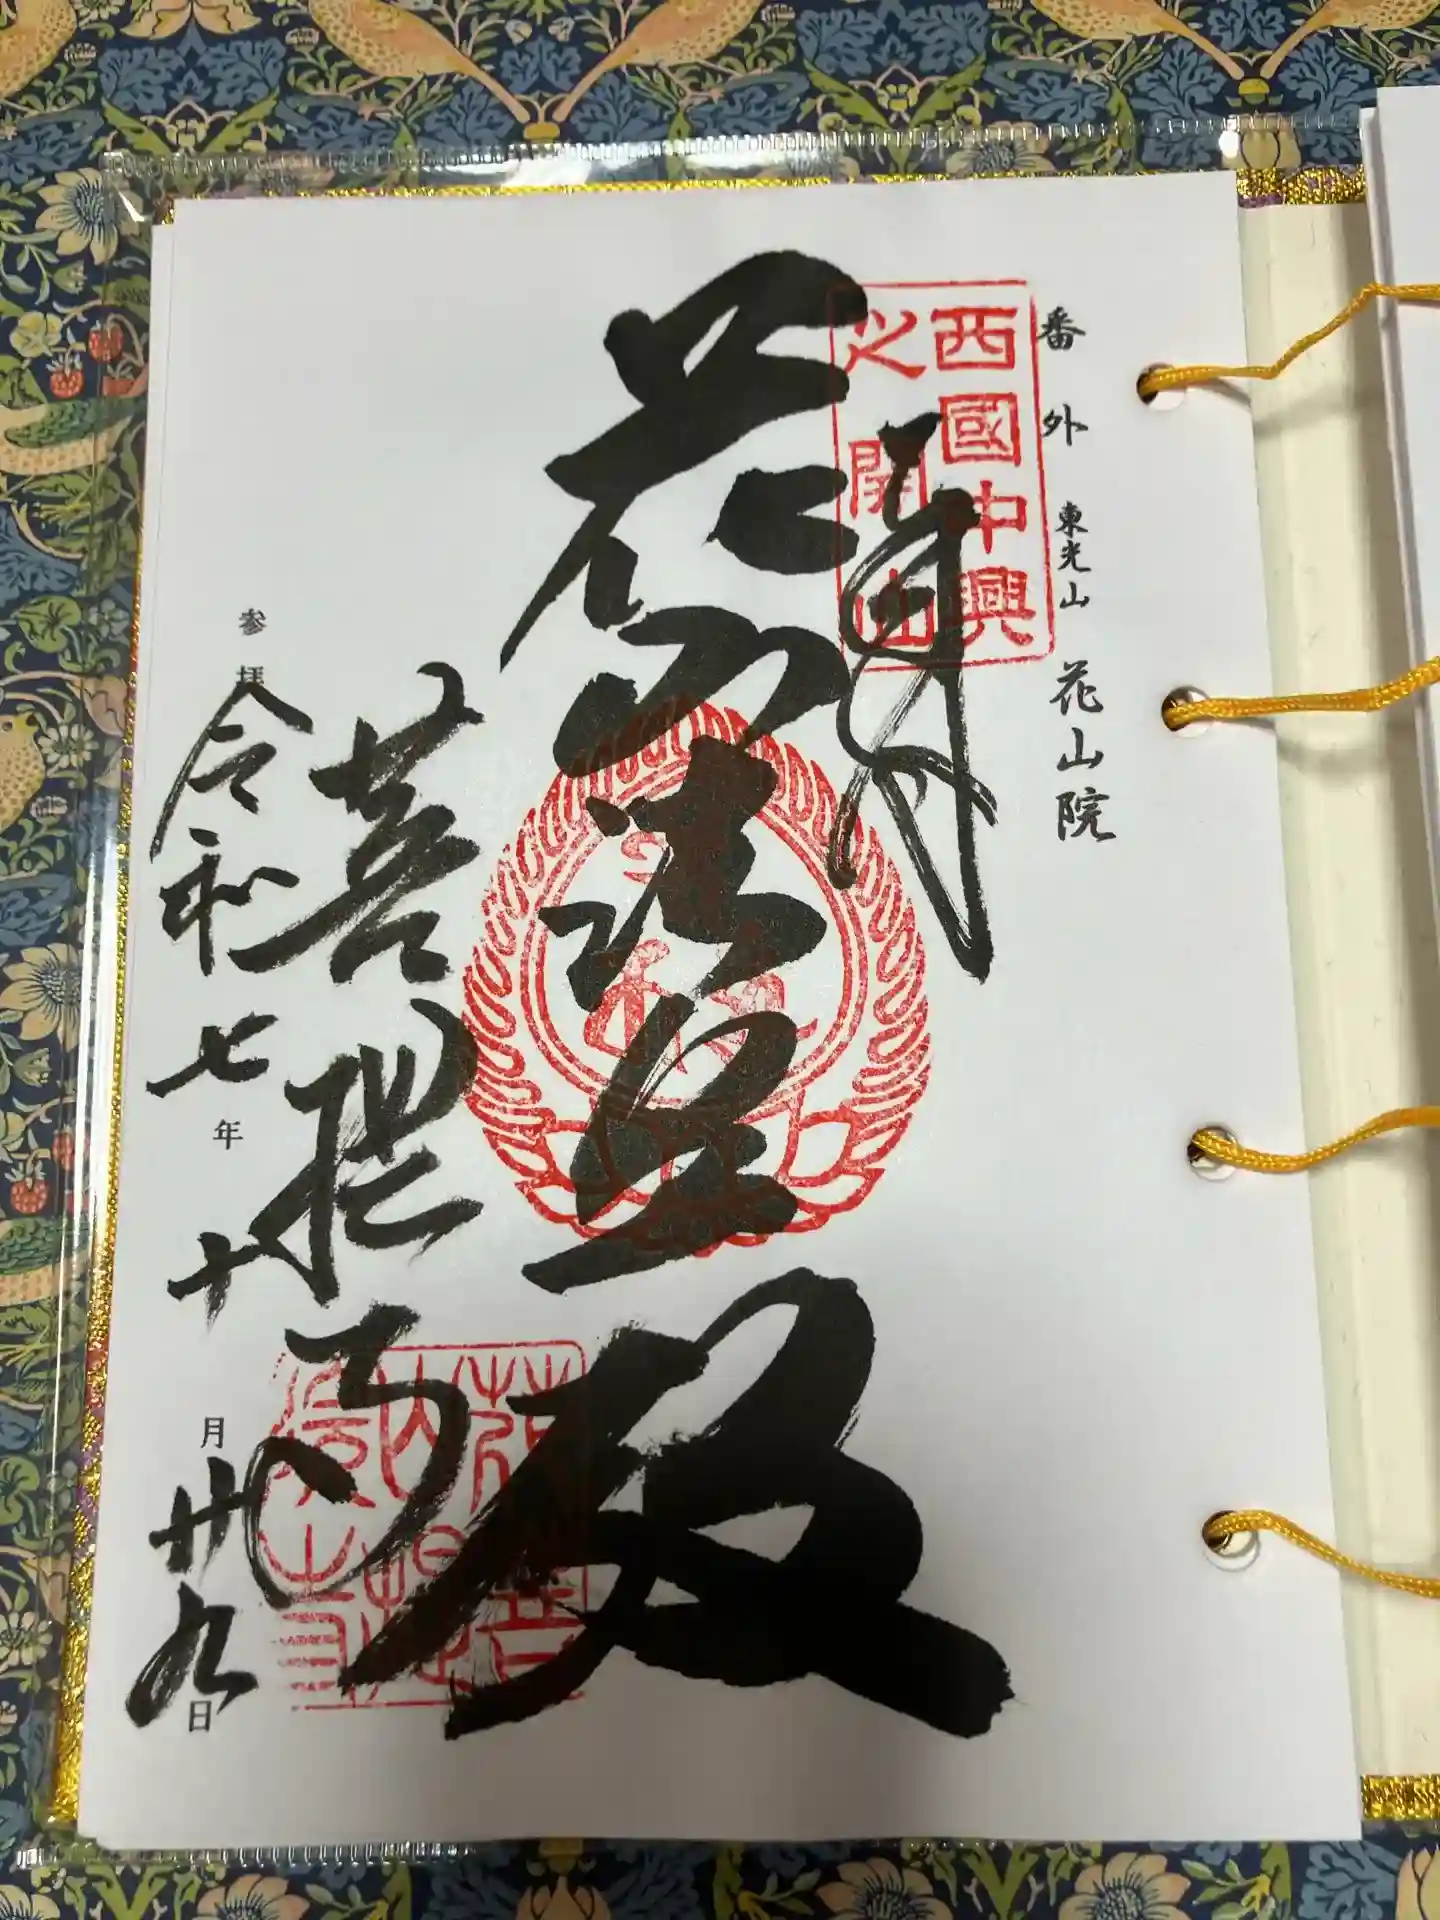 番外 東光山 花山院
西國中興
之開山
花山法皇殿
菩提寺
参拝 令和七年十月廿九日